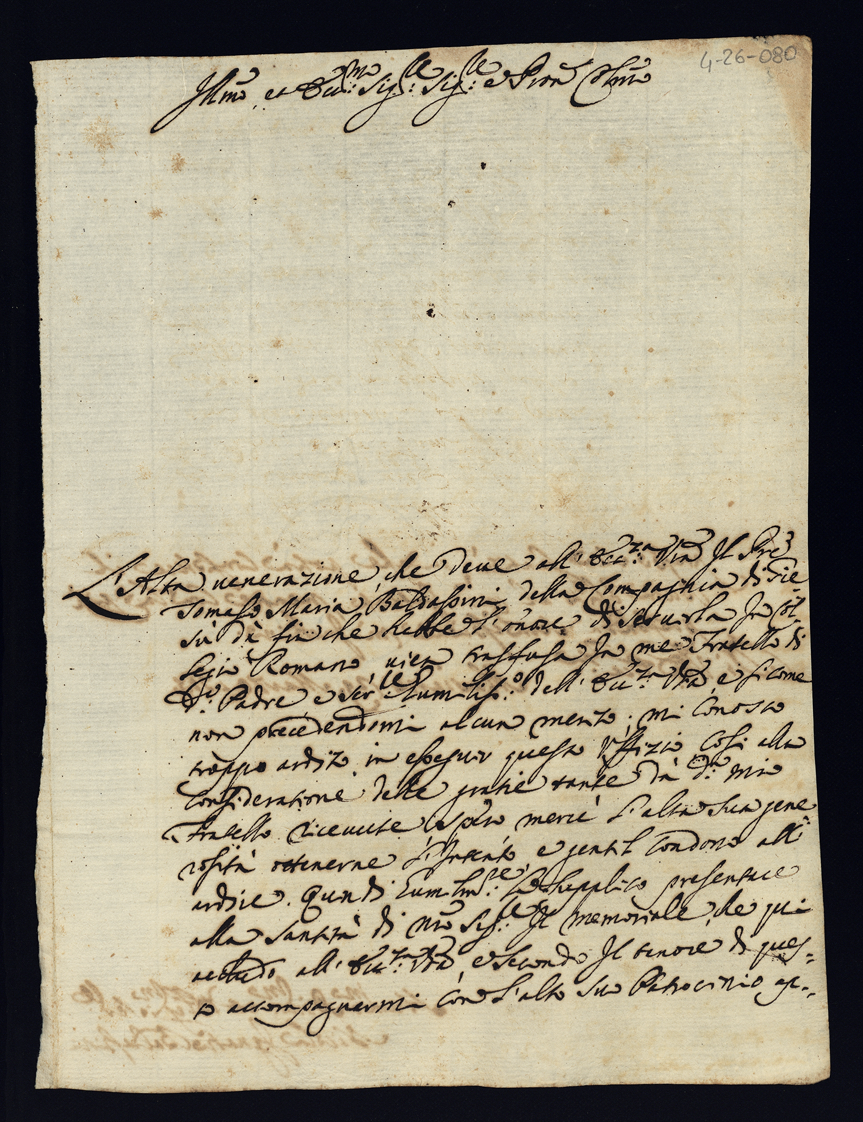 4-26-080
Illmo et Eccmo: Sigre: Sigre: e Pron Colmo
L'Alta venerazione, che deve all' Eccza Vra Il Pre
Tomaso Maria Baldassini della Compagnia di Gie-
sù dà fin che hebbe l'onore di servirla In Col-
legio Romano, vien trasfusa In me Fratello di
do: Padre e Serre Humiliso: dell' Eccza: Vra, e sicome
non precedendomi alcun merito, mi conosco
troppo ardito in eseguir questo Uffizio, così alla
consideratione delle gratie tante dà do: mio
Fratello ricevute, spero mercè l'alta sua gene
rosità ottenerne l'Intento, e gentil condono all'
ardire. Quindi humilmte: La supplico presentare
alla Santità di Nro Sigre: Il memoriale, che qui
accludo all' Eccza: Vra, e secondo Il tenore di ques-
to accompagnarmi con l'alto suo Patrocinio, ac-